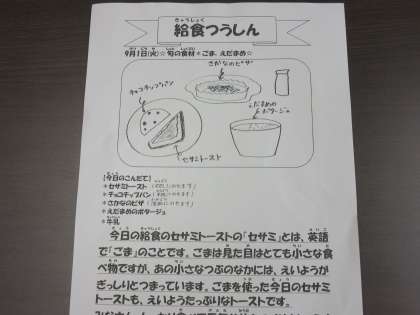 きゅうしょく
給食つうしん
9月1日(火)☆旬の食材＊ごま、えだまめ☆
さかなのピザ
チョコチップパン
えだまめの
ポタージュ
セサミトースト
【今日のこんだて】
＊セサミトースト
＊チョコチップパン
＊さかなのピザ
＊えだまめのポタージュ
＊牛乳
今日の給食のセサミトーストの「セサミ」とは、英語
で「ごま」のことです。ごまは見た目はとても小さな食
べ物ですが、あの小さなつぶのなかには、えいようが
ぎっしりとつまっています。ごまを使った今日のセサミ
トーストも、えいようたっぷりなトーストです。